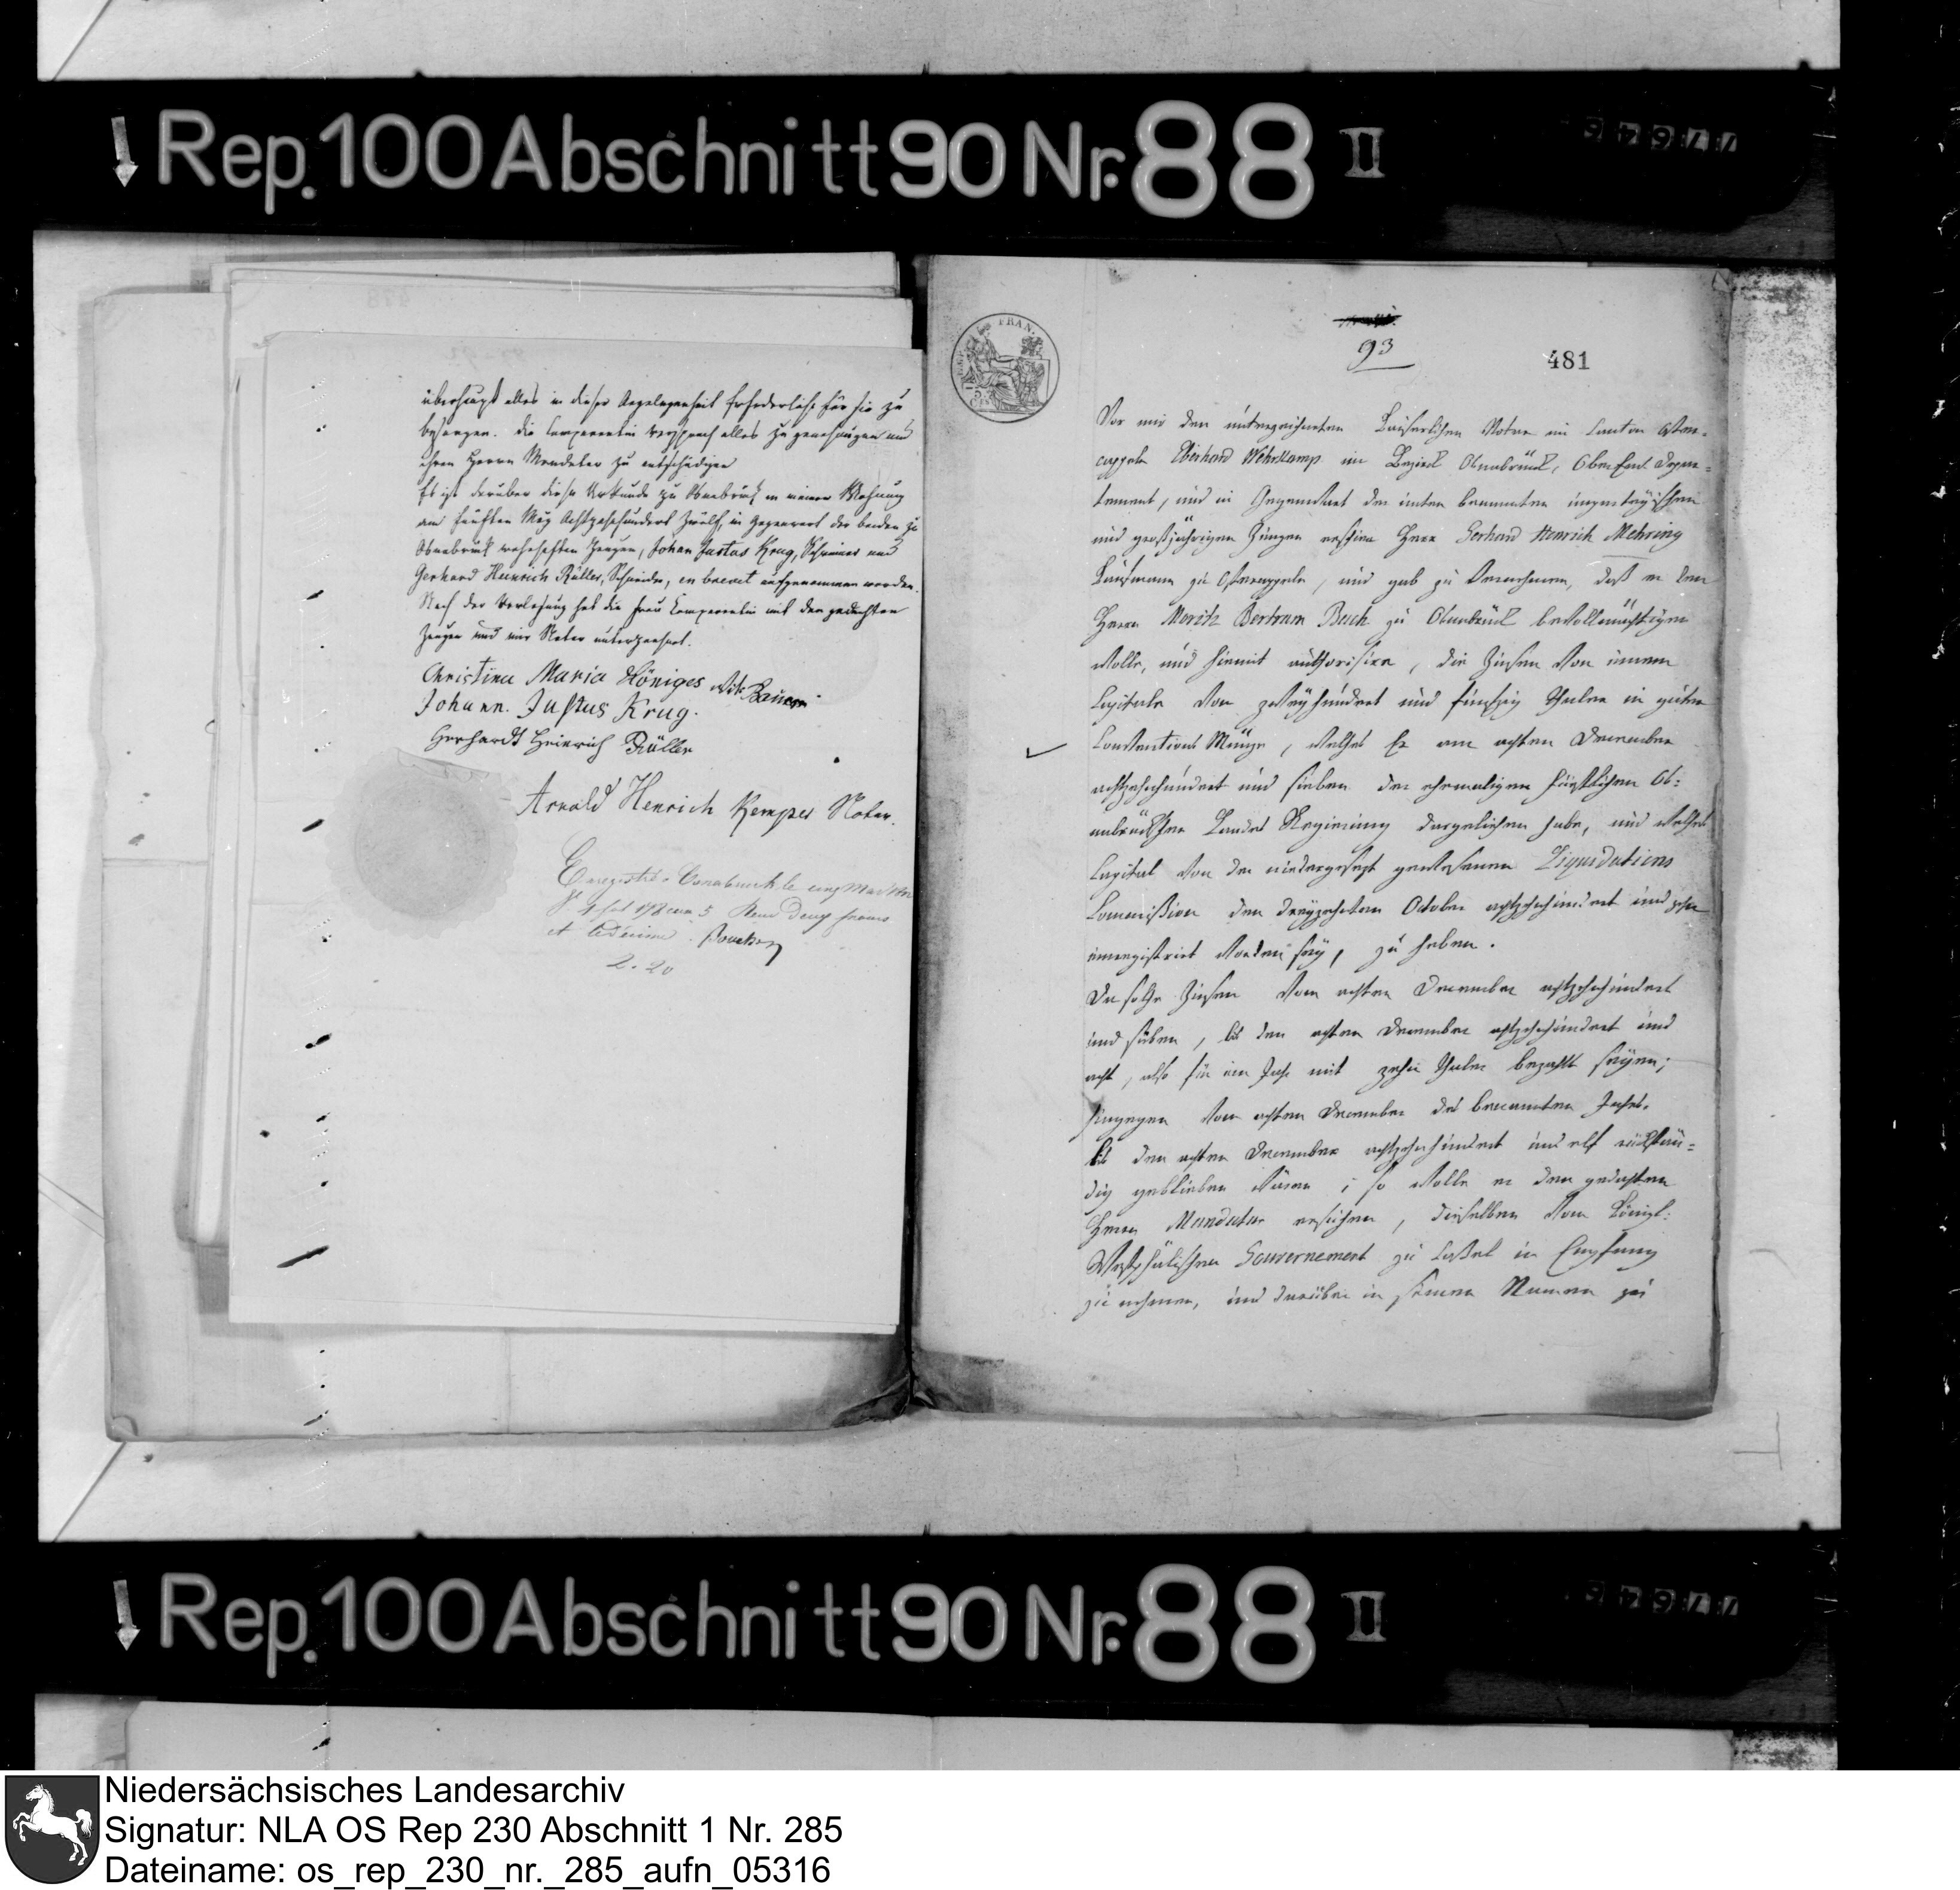 Rep. 100 Abschnitt 90 Nr. 88 II
überhaupt alles in dieser Angelegenheit Erforderliche für sie zu
besorgen. Die Comparentin versprach alles zu genehmigen und
ihren Herrn Mandatar zu entschädigen
Es ist darüber diese Urkunde zu Osnabrück in meiner Wohnung
am fünften May Achtzehnhundert Zwölf, in Gegenwart der beiden zu
Osnabrück wohnhaften Zeugen, Johan Justus Krug, Schreiner und
Gerhard Heinrich Rüller, Schneider, en brevet aufgenommen worden.
Nach der Vorlesung hat die Frau Comparentin mit den gedachten
Zeugen und mir Notar unterzeichnet.
Christina Maria Königes Witw Bauern
Johann. Justus Krug.
Gerhardt Heinrich Rüller
Arnold Henrich Kemper Notar.
Enregistré à Osnabruck le cinq Mai
Reçu deux francs
et décime. 
2. 20
FRAN.
93
481
Vor mir dem unterzeichneten Kaiserlichen Notar im Canton Oster-
cappeln Eberhard Wehrkamp im Bezirk Osnabrück, OberEms Depar-
tement, und in Gegenwart der unten benannten
und großjährigen Zeugen erschien Herr Gerhard Henrich Mehring
Kaufmann zu Ostercappeln, und gab zu vernehmen, daß er den
Herrn Moritz Bertram Buch zu Osnabrück bevollmächtigen
wolle, und hiemit authorisire, die Zinsen von einem
Capitale von zweyhundert und funfzig Thaler in guter
Conventions Münze, welches Er am achten December
achtzehnhundert und sieben der ehemaligen Fürstlichen Os-
nabrückschen Landes Regierung dargeliehen habe, und welches
Capital von der niedergesezt gewesenen Liquidations
Commißion den dreyzehnten October achtzehnhundert und zehn
einregistrirt worden sey, zu heben.
Da solche Zinsen vom achten December achtzehnhundert
und sieben, bis den achten December achtzehnhundert und
acht, also für ein Jahr mit zehn Thaler bezahlt seyen;
hingegen vom achten December des benannten Jahrs.
bis den achten December achtzehnhundert und elf rückstän-
dig geblieben wären; so wolle er den gedachten
Herrn Mandatar ersuchen, dieselben vom Königl:
Westphälischen Gouvernement zu Caßel in Empfang
zu nehmen, und darüber in seinem Namen zu
Rep. 100 Abschnitt 90 Nr. 88 II
Niedersächsisches Landesarchiv
Signatur: NLA OS Rep 230 Abschnitt 1 Nr. 285
Dateiname: os_rep_230_nr._285_aufn_05316